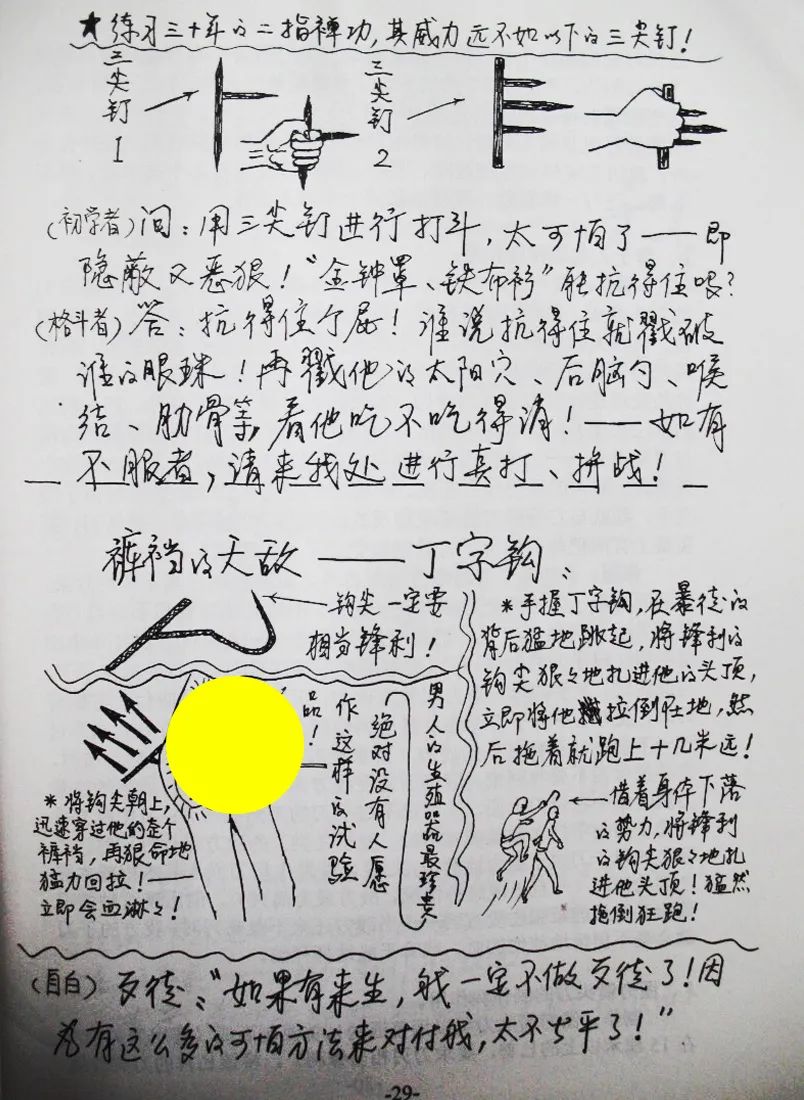 ★练习三十年的二指禅功，其威力远不如以下的三尖钉！
三尖钉1
三尖钉2
(初学者)问：用三尖钉进行打斗，太可怕了——即
隐蔽又恶狠！“金钟罩、铁布衫”能抗得住吱？
(格斗者)答：抗得住个屁！谁说抗得住就戳破
谁的眼珠！再戳他的太阳穴、后脑勺、喉
结、肋骨等，看他吃不吃得消！——如有
不服者，请来我处进行真打、拚战！
裤裆的天敌——丁字钩：
钩尖一定要
相当锋利！
*手握丁字钩，在暴徒的
背后猛地跳起，将锋利的
钩尖狠々地扎进他的头顶，
立即将他拉倒在地，然
后拖着就跑上十几米远！
男人的生殖器最珍贵
绝对没有人愿
作这样的试验
品！
*将钩尖朝上，
迅速穿过他的整个
裤裆，再狠命地
猛力回拉！——
立即会血淋々！
借着身体下落
的势力，将锋利
的钩尖狠々地扎
进他头顶！猛然
拖倒狂跑！
(自白)歹徒：“如果有来生，我一定不做歹徒了！因
为有这么多的可怕方法来对付我，太不公平了！”
-29-